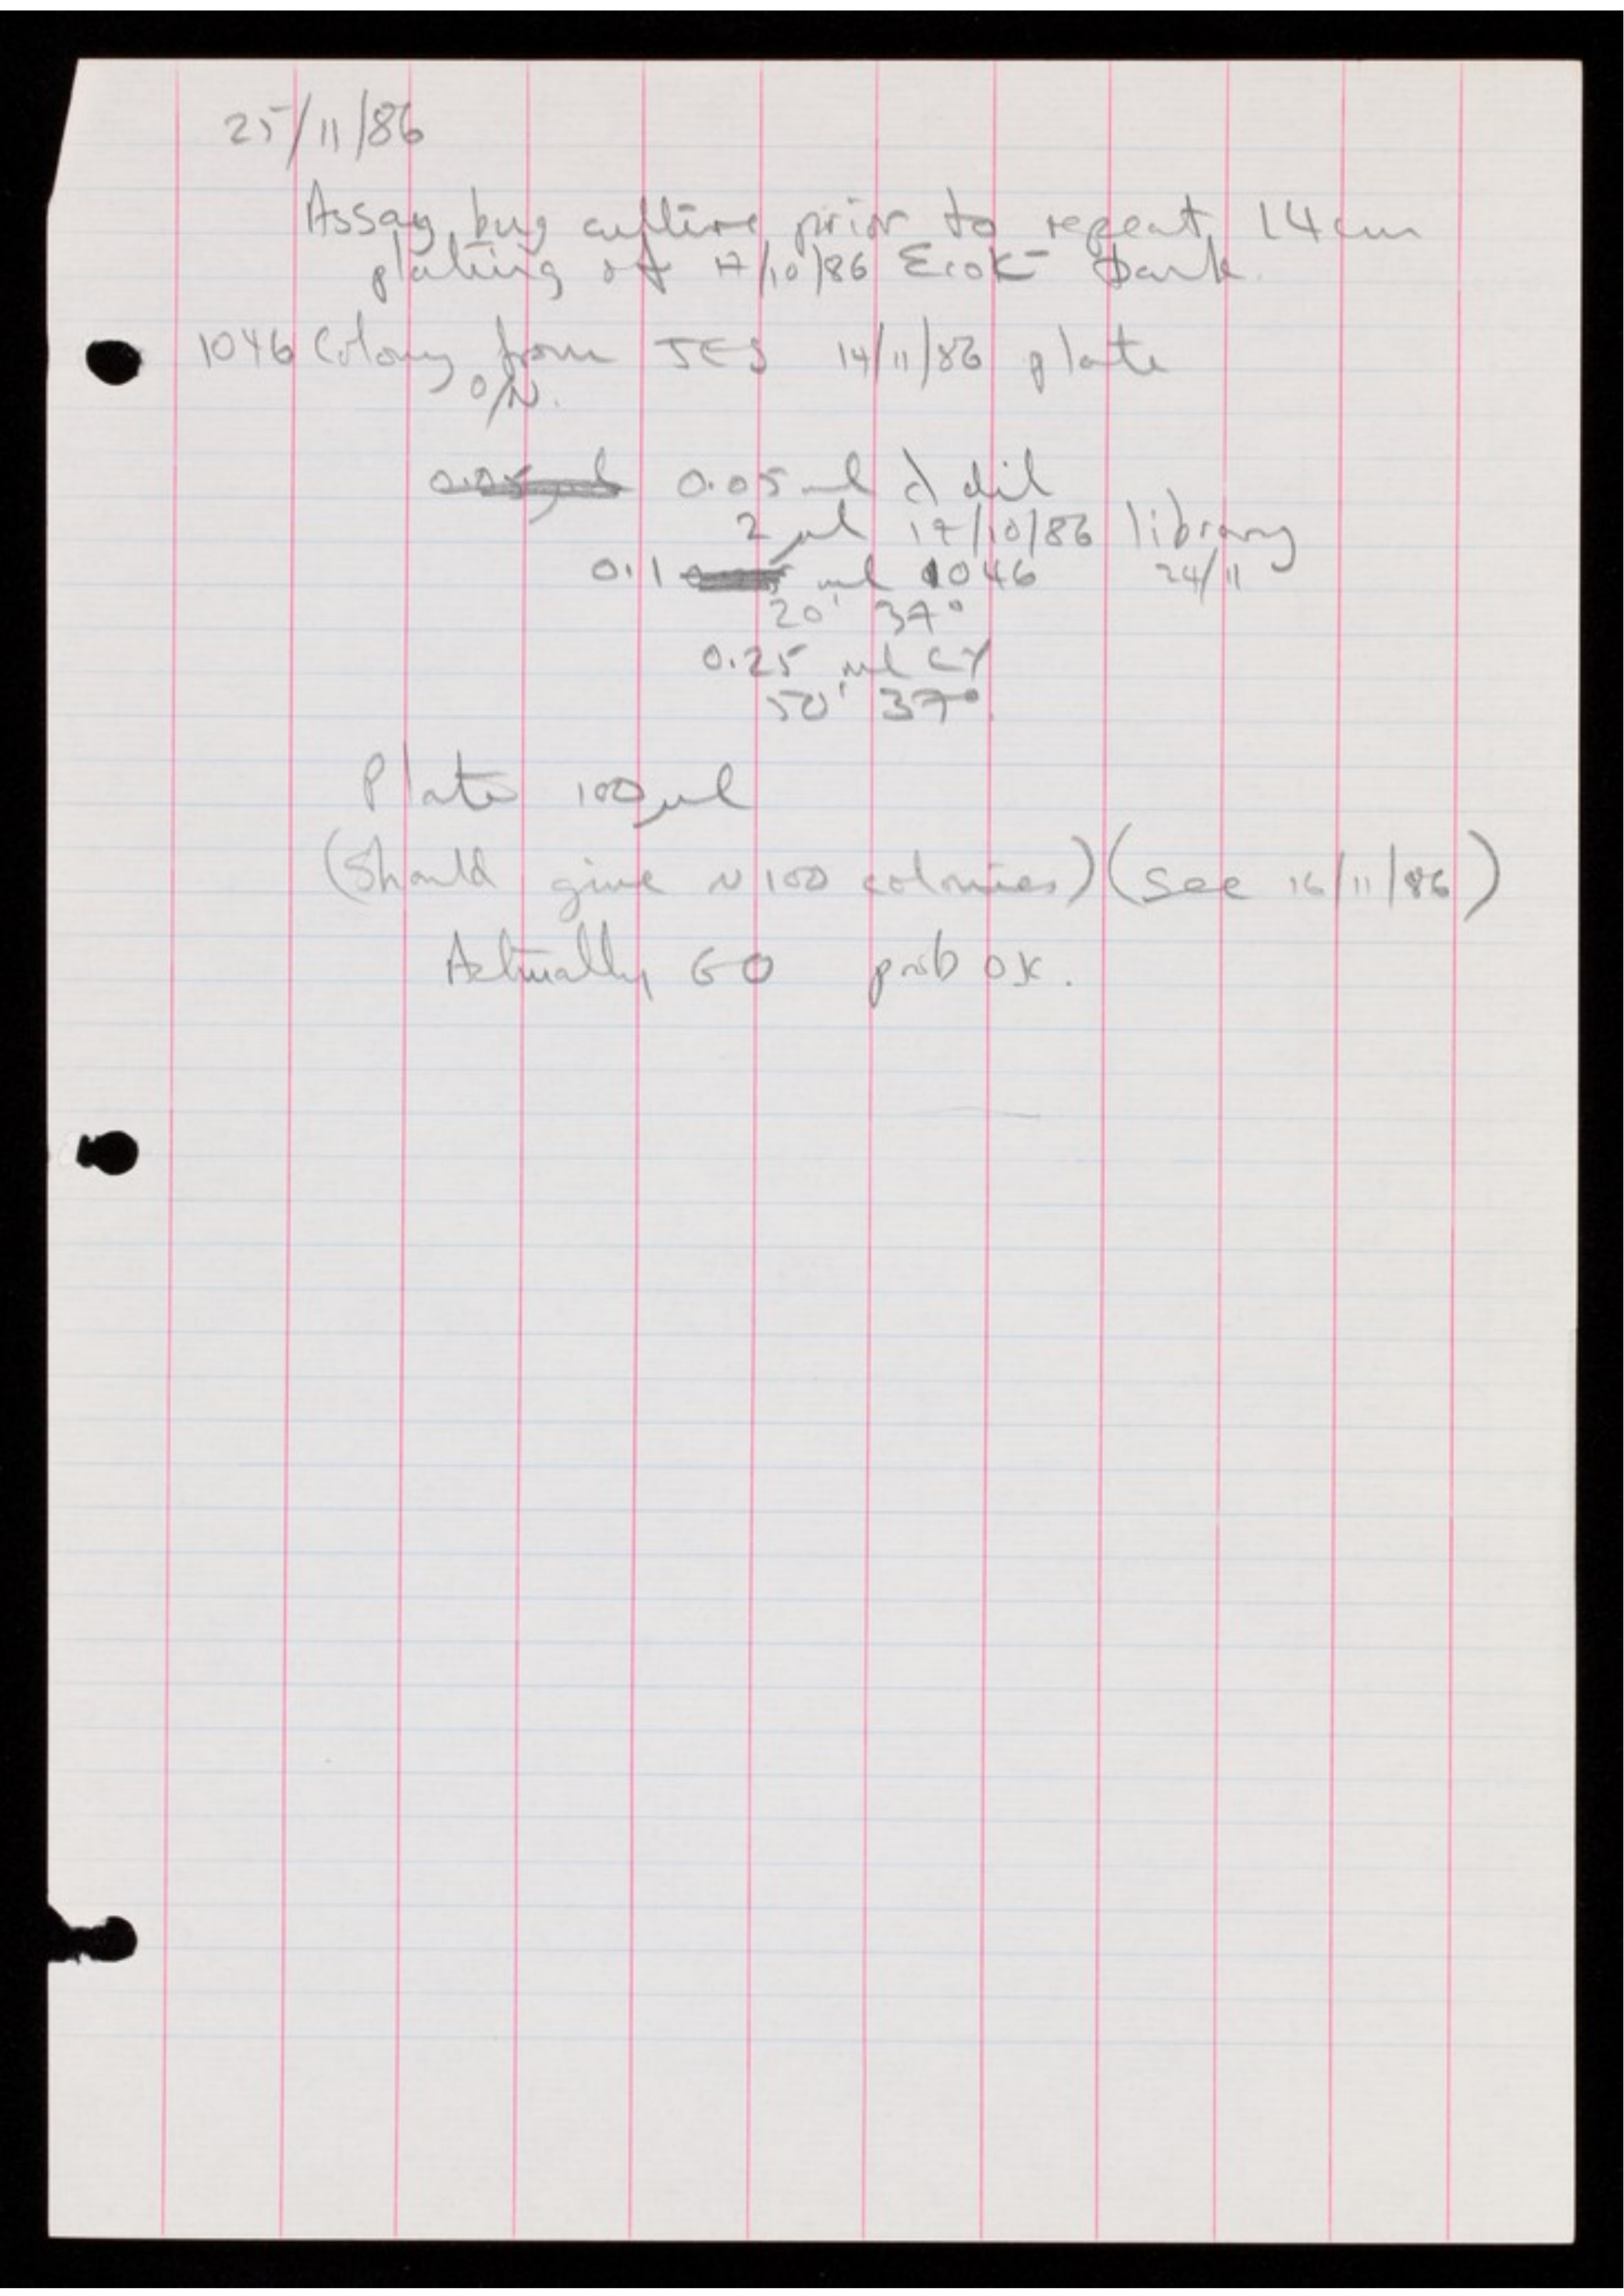 25/11/86
Assay bug culture prior to repeat 14cm
plating of 17/10/86 EcoK⁻ bank.
1046 Colony from JES 14/11/86 plate
O/N.
0.05 ml λ dil
2 μl 17/10/86 library
0.1 ml 1046 24/11
20' 37°
0.25 ml CY
50' 37°
Plate 100μl
(Should give ~100 colonies) (see 16/11/86)
Actually 60 prob OK.